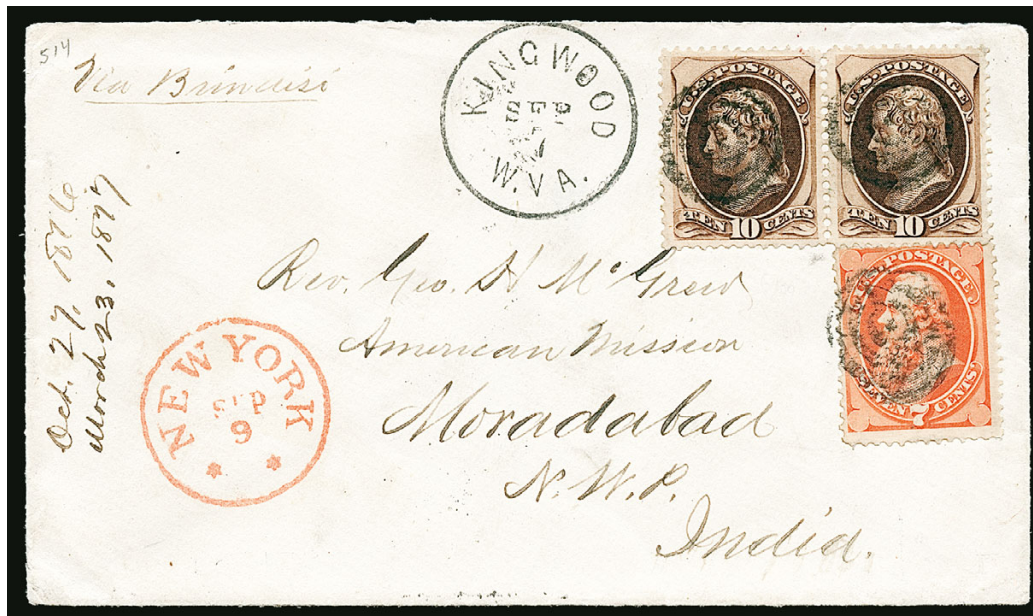 514
Via Brindisi
KINGWOOD
SEP
7
W. VA.
U.S. POSTAGE
TEN 10 CENTS
U.S. POSTAGE
TEN 10 CENTS
U.S. POSTAGE
SEVEN 7 CENTS
Oct. 27, 1876
March 23, 1877
Rev. Geo. H McGrew
American Mission
Moradabad
N. W. P.
India.
NEW YORK
SEP
9